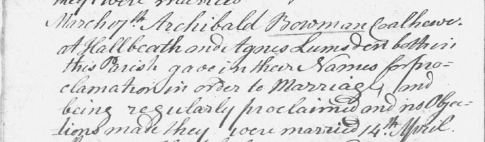 they were married
March 17th Archibald Bowman Coalhewe.
at Hallbeath and Agnes Lumsden both in
this Parish gave in their Names for pro-
clamation in order to Marriage, and
being regularly proclaimed and no Objec-
tions made they were married 14th April.